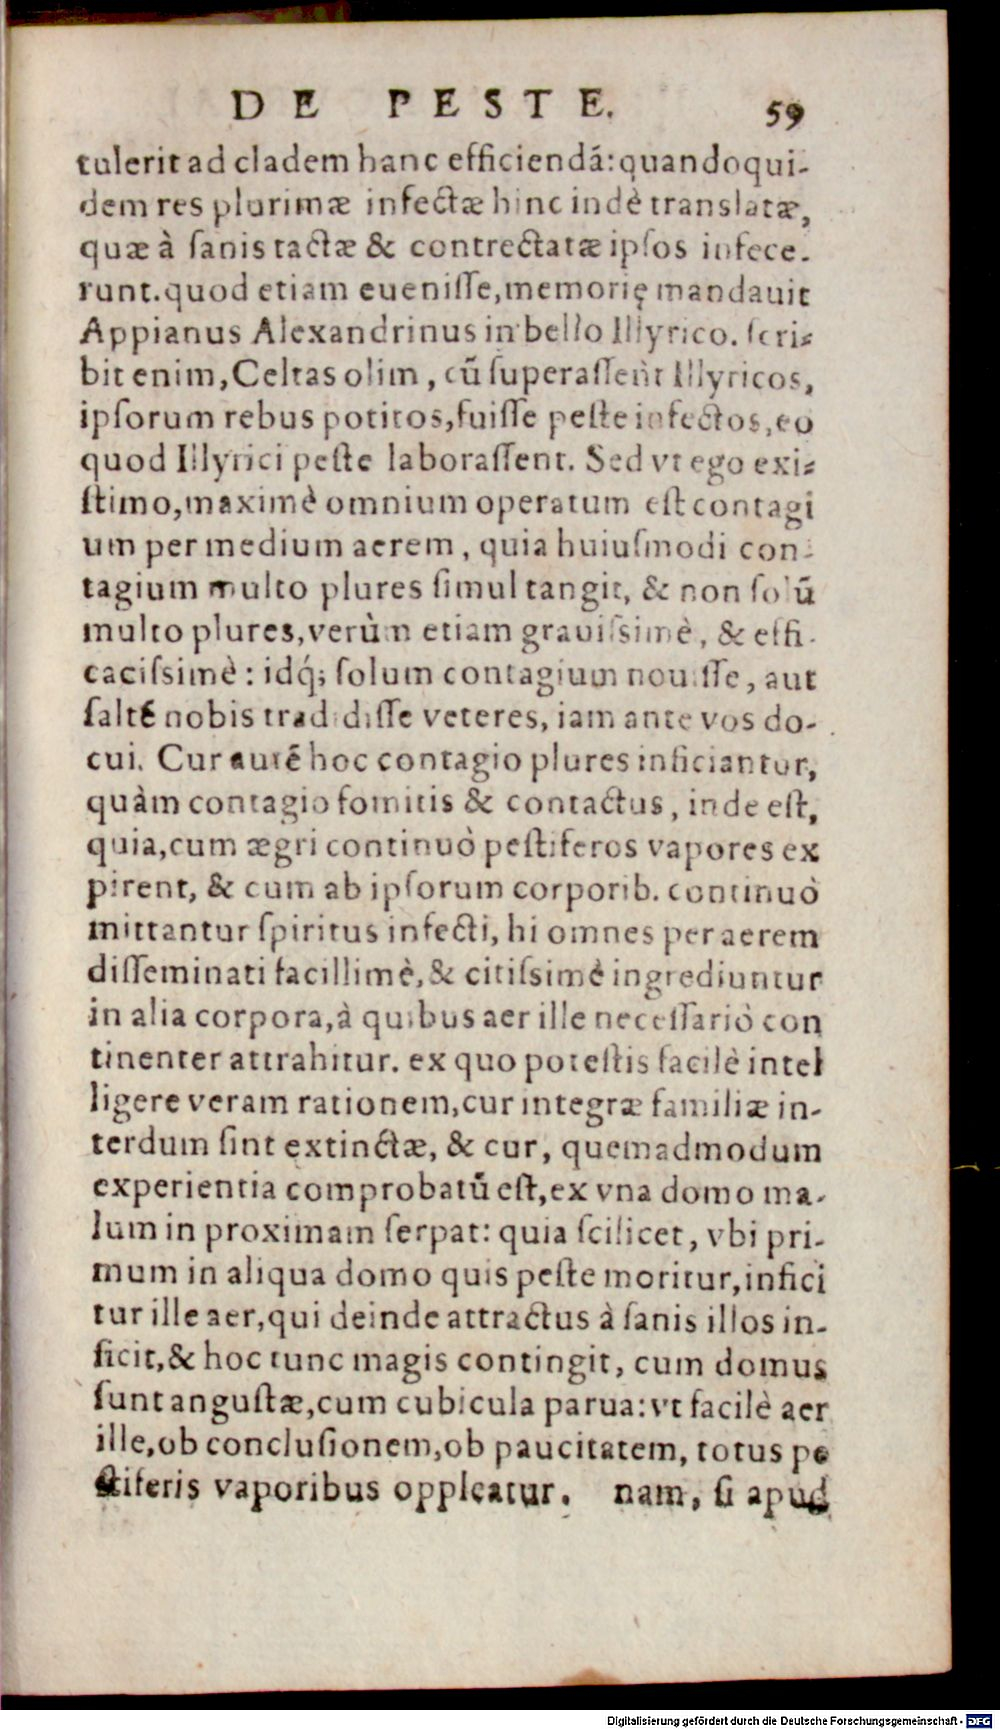 DE PESTE. 59
tulerit ad cladem hanc efficiendã: quandoqui-
dem res plurimæ infectæ hinc indè translatæ,
quæ à ſanis tactæ & contrectatæ ipſos infece-
runt. quod etiam eueniſſe, memorię mandauit
Appianus Alexandrinus in bello Illyrico. ſcri-
bit enim, Celtas olim, cũ ſuperaſſent Illyricos,
ipſorum rebus potitos, fuiſſe peſte infectos, eo
quod Illyrici peſte laboraſſent. Sed vt ego exi-
ſtimo, maximè omnium operatum eſt contagi
um per medium aerem, quia huiuſmodi con-
tagium multo plures ſimul tangit, & non ſolũ
multo plures, verùm etiam grauiſsimè, & effi-
caciſsimè: idq́; ſolum contagium nouiſſe, aut
ſaltẽ nobis tradidiſſe veteres, iam ante vos do-
cui. Cur autẽ hoc contagio plures inficiantur,
quàm contagio fomitis & contactus, inde eſt,
quia, cum ægri continuò peſtiferos vapores ex
pirent, & cum ab ipſorum corporib. continuò
mittantur ſpiritus infecti, hi omnes per aerem
diſſeminati facillimè, & citiſsimè ingrediuntur
in alia corpora, à quibus aer ille neceſſariò con
tinenter attrahitur. ex quo poteſtis facilè intel
ligere veram rationem, cur integræ familiæ in-
terdum ſint extinctæ, & cur, quemadmodum
experientia comprobatũ eſt, ex vna domo ma-
lum in proximam ſerpat: quia ſcilicet, vbi pri-
mum in aliqua domo quis peſte moritur, infici
tur ille aer, qui deinde attractus à ſanis illos in-
ficit, & hoc tunc magis contingit, cum domus
ſunt anguſtæ, cum cubicula parua: vt facilè aer
ille, ob concluſionem, ob paucitatem, totus pe
ſtiferis vaporibus oppleatur. nam, ſi apud
Digitalisierung gefördert durch die Deutsche Forschungsgemeinschaft - DFG